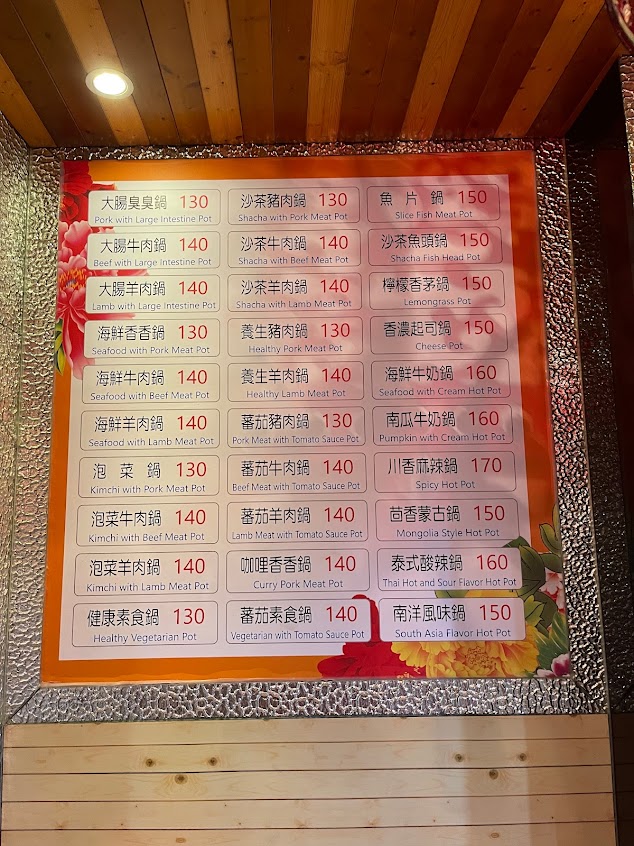 大腸臭臭鍋 130
Pork with Large Intestine Pot
大腸牛肉鍋 140
Beef with Large Intestine Pot
大腸羊肉鍋 140
Lamb with Large Intestine Pot
海鮮香香鍋 130
Seafood with Pork Meat Pot
海鮮牛肉鍋 140
Seafood with Beef Meat Pot
海鮮羊肉鍋 140
Seafood with Lamb Meat Pot
泡菜鍋 130
Kimchi with Pork Meat Pot
泡菜牛肉鍋 140
Kimchi with Beef Meat Pot
泡菜羊肉鍋 140
Kimchi with Lamb Meat Pot
健康素食鍋 130
Healthy Vegetarian Pot
沙茶豬肉鍋 130
Shacha with Pork Meat Pot
沙茶牛肉鍋 140
Shacha with Beef Meat Pot
沙茶羊肉鍋 140
Shacha with Lamb Meat Pot
養生豬肉鍋 130
Healthy Pork Meat Pot
養生羊肉鍋 140
Healthy Lamb Meat Pot
蕃茄豬肉鍋 130
Pork Meat with Tomato Sauce Pot
蕃茄牛肉鍋 140
Beef Meat with Tomato Sauce Pot
蕃茄羊肉鍋 140
Lamb Meat with Tomato Sauce Pot
咖哩香香鍋 140
Curry Pork Meat Pot
蕃茄素食鍋 140
Vegetarian with Tomato Sauce Pot
魚片鍋 150
Slice Fish Meat Pot
沙茶魚頭鍋 150
Shacha Fish Head Pot
檸檬香茅鍋 150
Lemongrass Pot
香濃起司鍋 150
Cheese Pot
海鮮牛奶鍋 160
Seafood with Cream Hot Pot
南瓜牛奶鍋 160
Pumpkin with Cream Hot Pot
川香麻辣鍋 170
Spicy Hot Pot
茴香蒙古鍋 150
Mongolia Style Hot Pot
泰式酸辣鍋 160
Thai Hot and Sour Flavor Hot Pot
南洋風味鍋 150
South Asia Flavor Hot Pot